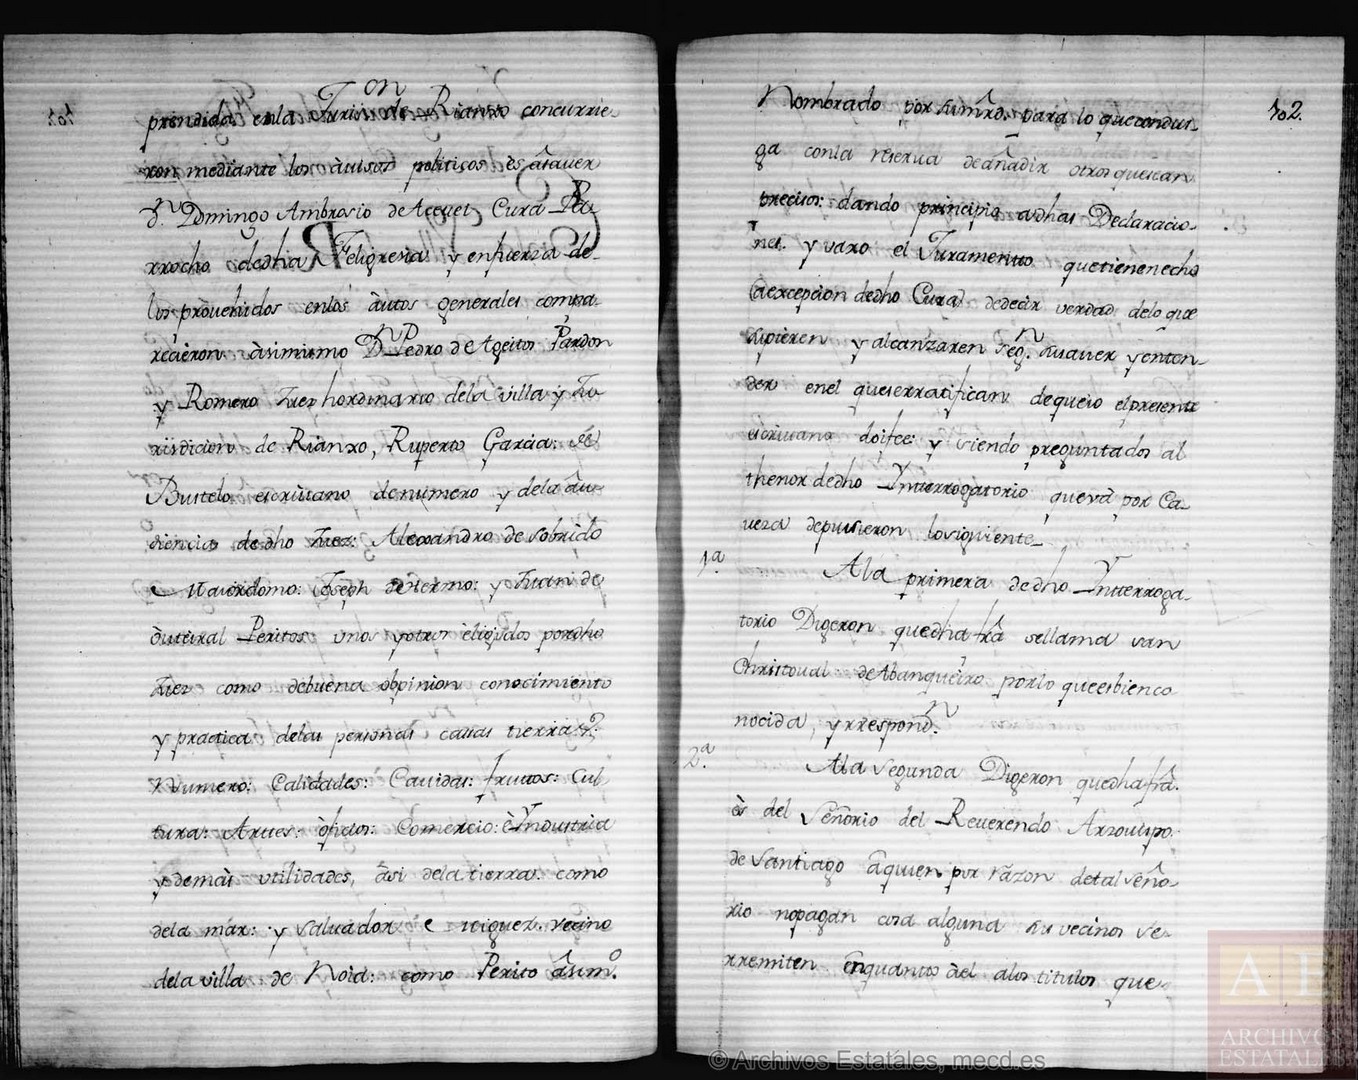 prendida enla Jurisd.on de Rianxo concurrie-
ron mediante los àuisos politicos ès âsauer
d.n Domingo Ambrosio de Acevet Cura Pa-
rrocho dedha Feligresia y enfuerza de
los pròuehidos enlos àutos generales compa-
recièron àsimismo D.n Pedro de Ageitos Pardon
y Romero Juez hordinario dela villa y Ju-
risdicion de Rianxo, Ruperto Garcia: de
Bustelo escriuano denumero y dela âu-
diencia dedho Juez: Alexandro de Sobrido
Maiordomo: Joseph de Hermo: y Juan de
òuteiral Peritos unos yotros èligidos pordho
Juez como debuena obpinion conocimiento
y practica delas personas casas tierras: s.
Numero: Calidades: Cauidas: frutos: Cul-
tura: Artes: òficios: Comercio: è Yndustria
ydemàs utilidades, âsi delatierra. como
dela màr: y Saluador e vecino
dela villa de Noia: como Perito âsim.o
102.
Nombrado por sumrd. para lo queconduz-
ga conla reserua deañadir otros quesean
precisos: dando principio adhas Declaracio-
nes. y vaxo el Juramento quetienenecho
(aexcepcion dedho Cura) dedecir verdad delo que
supieren y alcanzaren seg.n susauer yenten-
der enel queserratifican dequeio elpresente
escriuano doifee: y siendo preguntados al
thenor dedho Ynterrogatorio quevà por Ca-
ueza depusieron losiguiente_
1.a Ala primera dedho Ynterroga-
torio Digeron quedha frâ sellama san
Christoual deAbanqueiro porlo queesbienco-
nocida, yrrespond.n
2.a Ala segunda Digeron quedhafrâ.
ès del Señorio del Reuerendo Arzouispo.
de Santiago âquien por razon detal seño-
rio nopagan cosa alguna sus vecinos se-
rremiten enquanto àel alos titulos que-
© Archivos Estatales, mecd.es
AE
ARCHIVOS
ESTATALES